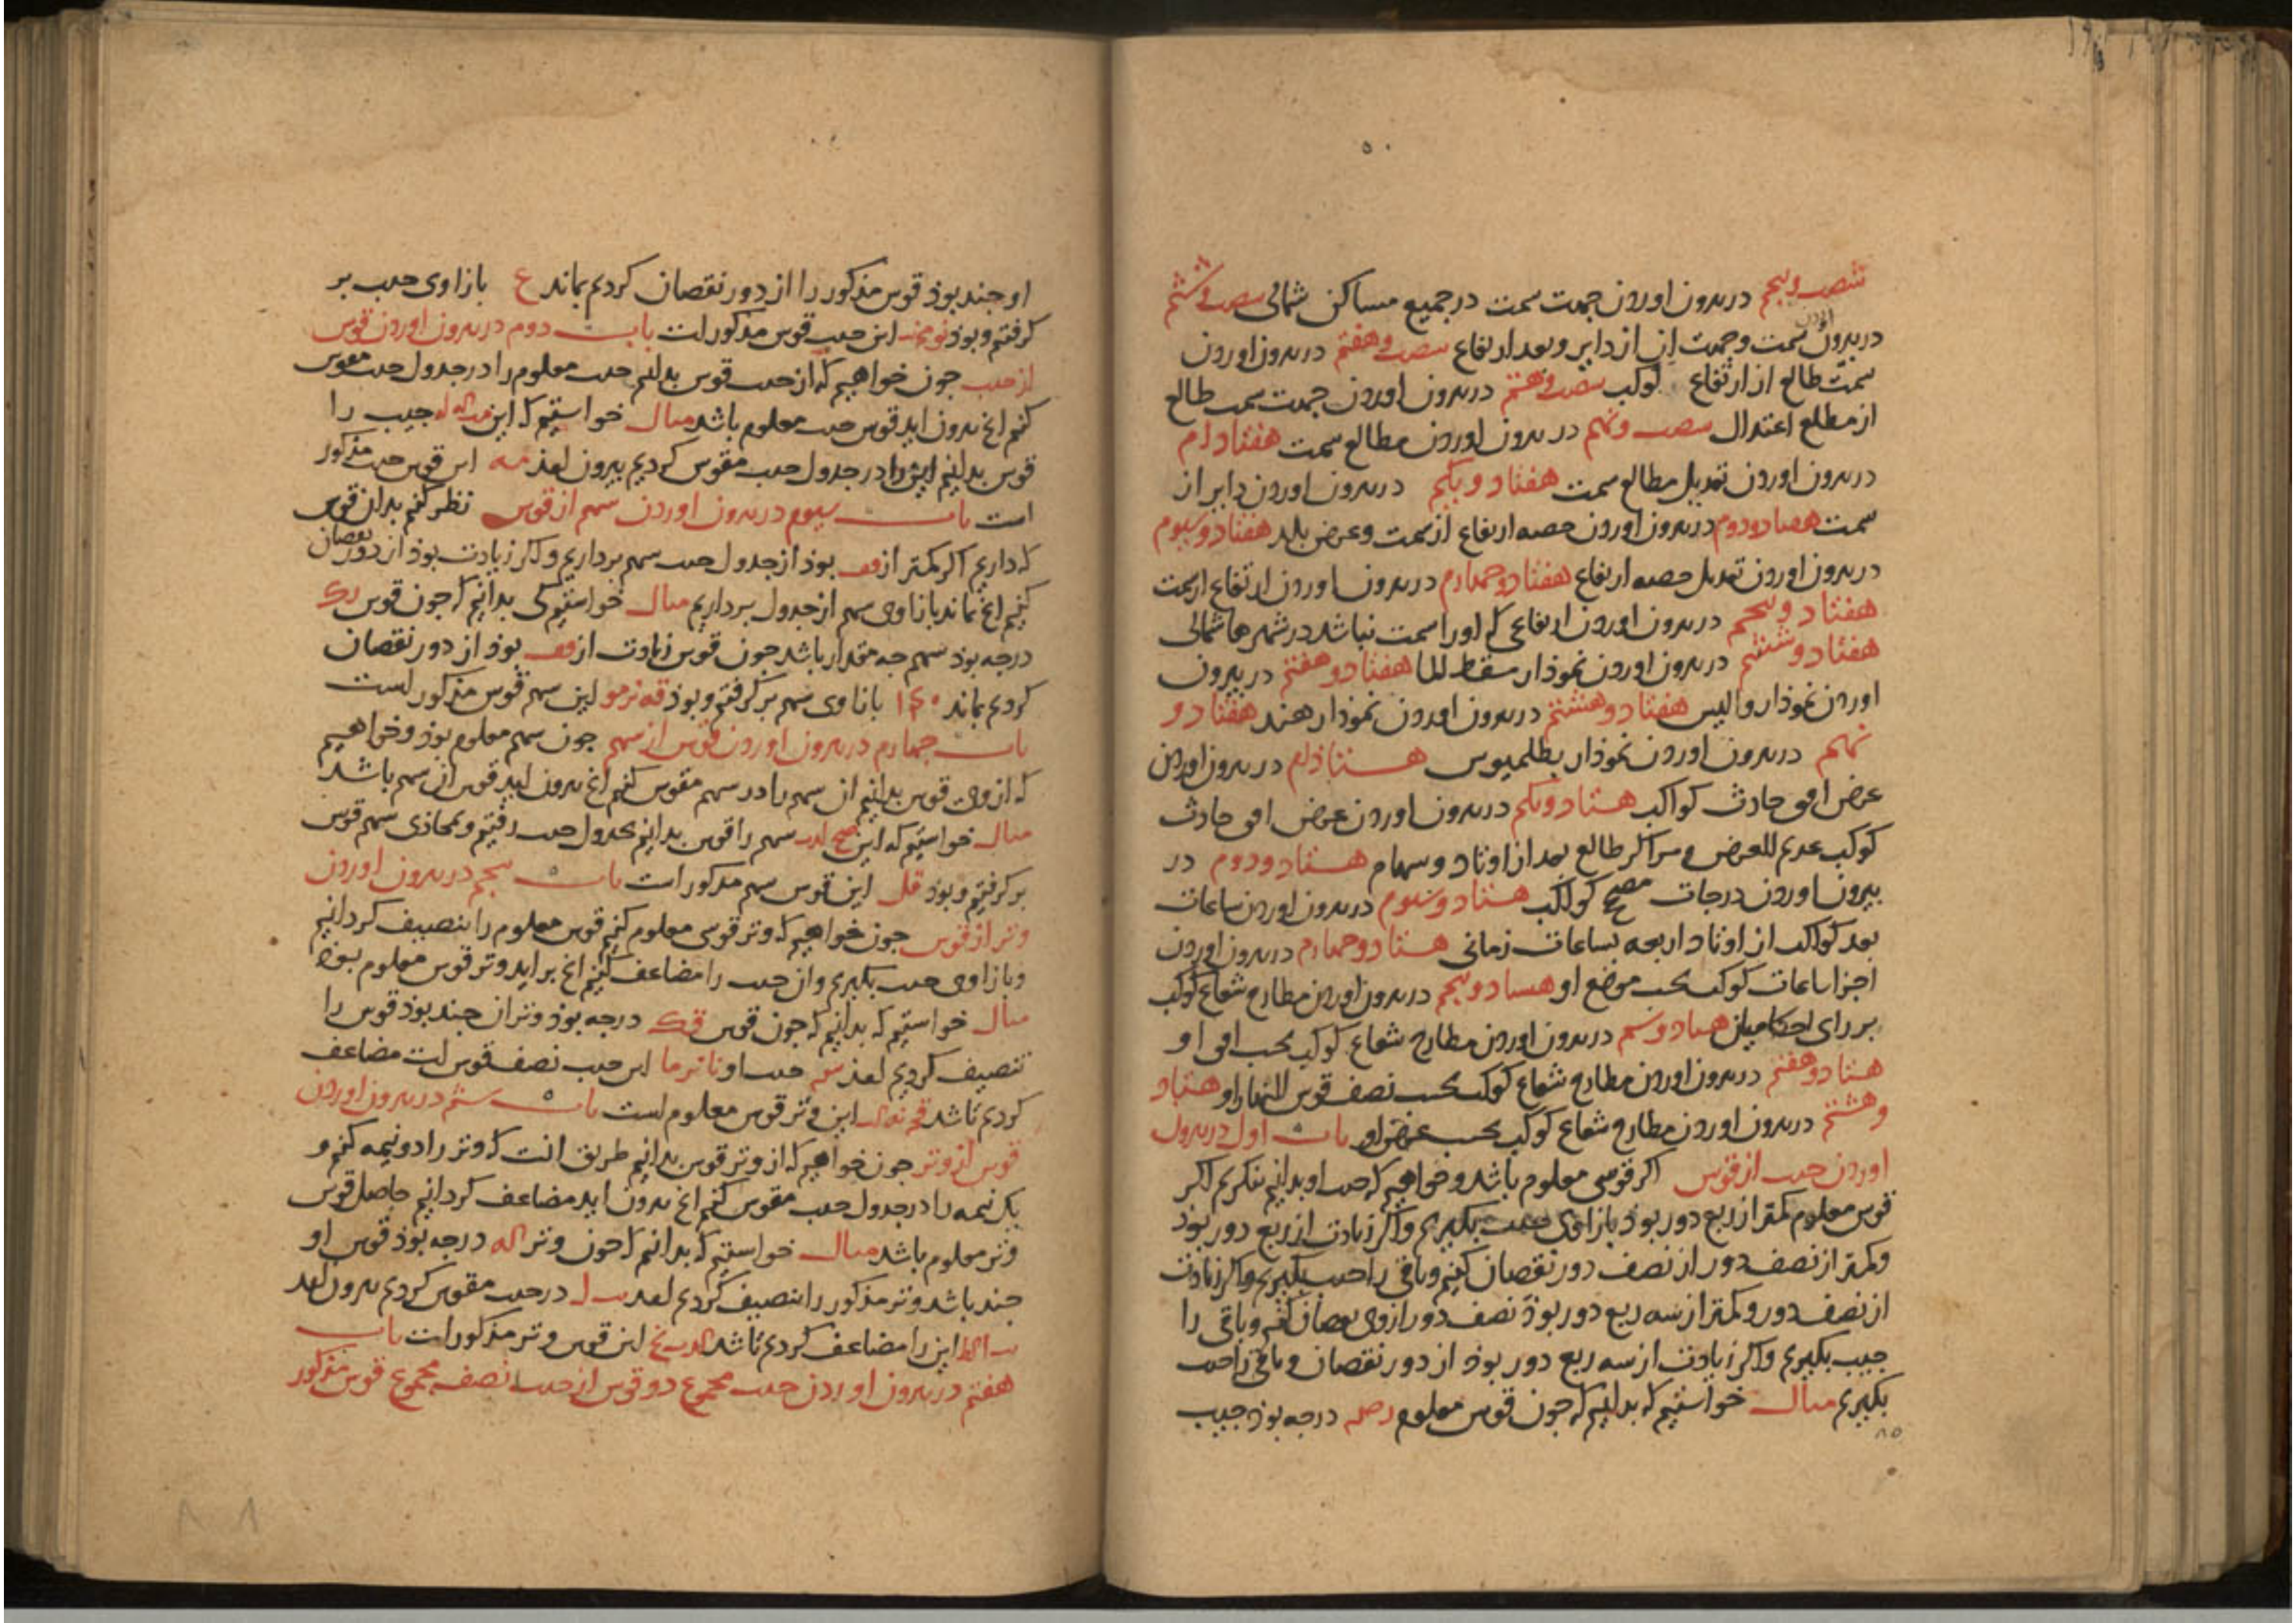 شصت و پنجم در بیرون اوردن جهت سمت در جمیع مساکن شمالی شصت و ششم
در بیرون اوردن سمت وجهت ان از دایر وبعد ارتفاع شصت و هفتم در بیرون اوردن
سمت طالع از ارتفاع کوکب شصت و هشتم در بیرون اوردن جهت سمت طالع
از مطلع اعتدال شصت ونهم در بیرون اوردن مطالع سمت هفتاذام
در بیرون اوردن تعدیل مطالع سمت هفتاد ویکم در بیرون اوردن دایر از
سمت هفتاد ودوم در بیرون اوردن حصه ارتفاع از سمت وعرض بلد هفتاد وسیوم
در بیرون اوردن تعدیل حصه ارتفاع هفتاد وچهارم در بیرون اوردن ارتفاع از سمت
هفتاد وپنجم در بیرون اوردن ارتفاعی که اورا سمت نباشد در شهرها شمالی
هفتاد وششم در بیرون اوردن نموذار مسقط الما هفتاد وهفتم در بیرون
اوردن نموذار والیس هفتاد وهشتم در بیرون اوردن نموذار هند هفتاد و
نهم در بیرون اوردن نموذار بطلمیوس هشتاذام در بیرون اوردن
عرض افق حادث کواکب هشتاد ویکم در بیرون اوردن عرض افق حادث
کوکب عدیم العرض ومراکز طالع بعد از اوتاد وسهام هشتاد ودوم در
بیرون اوردن درجات مصحح کواکب هشتاد وسیوم در بیرون اوردن ساعات
بعد کواکب از اوتاد اربعه بساعات زمانی هشتاد وچهارم در بیرون اوردن
اجزا ساعات کوکب بحسب موضع او هشتاد وپنجم در بیرون اوردن مطارح شعاع کوکب
بر رای احکامیان هشتاد وششم در بیرون اوردن مطارح شعاع کوکب بحسب افق او
هشتاد وهفتم در بیرون اوردن مطارح شعاع کوکب بحسب نصف قوس النهار او هشتاد
وهشتم در بیرون اوردن مطارح شعاع کوکب بحسب عرض او باب اول در بیرون
اوردن جیب از قوس اکر قوسی معلوم باشد وخواهیم که جیب او بدانیم بنکریم اکر
قوس معلوم کمتر از ربع دور بوذ بازا وی جیب بکیریم واکر زیادت از ربع دور بوذ
وکمتر از نصف دور از نصف دور نقصان کنیم وباقی را جیب بکیریم واکر زیادت
از نصف دور وکمتر از سه ربع دور بوذ نصف دور ازوی نقصان کنیم وباقی را
جیب بکیریم واکر زیادت از سه ربع دور بوذ از دور نقصان وباقی را جیب
بکیریم مثال خواستیم که بدانیم که جون قوس معلوم درجه بوذ جیب
او جند بوذ قوس مذکور را از دور نقصان کردیم بماند ع بازا وی جیب بر
کرفتیم وبوذ این جیب قوس مذکورست باب دوم در بیرون اوردن قوس
از جیب جون خواهیم که از جیب قوس بدانیم جیب معلوم را در جدول جیب مقوس
کنیم انچ بیرون اید قوس جیب معلوم باشد مثال خواستیم که این جیب را
قوس بدانیم این را در جدول جیب مقوس کردیم بیرون امذ این قوس جیب مذکور
است باب سیوم در بیرون اوردن سهم از قوس نظر کنیم بدان قوس
که داریم اکر کمتر از قف بوذ از جدول جیب سهم برداریم واکر زیادت بوذ از دور نقصان
کنیم انچ بماند بازا وی سهم از جدول برداریم مثال خواستیم کی بدانیم که جون قوس رک
درجه بوذ سهم جه مقدار باشد جون قوس زیادت از قف بوذ از دور نقصان
کردیم بماند ۱۴۰ بازا وی سهم بر کرفتیم وبوذ قه نز مو این سهم قوس مذکورست
باب چهارم در بیرون اوردن قوس از سهم جون سهم معلوم بوذ وخواهیم
که ازوی قوس بدانیم ان سهم را در سهم مقوس کنیم انچ بیرون اید قوس ان سهم باشد
مثال خواستیم که این سهم را قوس بدانیم بجدول جیب رفتیم وبمحاذی سهم قوس
بر کرفتیم وبوذ قل این قوس سهم مذکور است باب پنجم در بیرون اوردن
وتر از قوس جون خواهیم که وتر قوسی معلوم کنیم قوس معلوم را تنصیف کردانیم
وبازا وی جیب بکیریم وان جیب را مضاعف کنیم انچ براید وتر قوس معلوم بوذ
مثال خواستیم که بدانیم که جون قوس قک درجه بوذ وتر ان جند بوذ قوس را
تنصیف کردیم امذ س جیب او نا نز ما این جیب نصف قوس است مضاعف
کردیم باشد این وتر قوس معلوم است باب ششم در بیرون اوردن
قوس از وتر جون خواهیم که از وتر قوس بدانیم طریق انست که وتر را دو نیمه کنیم و
یک نیمه را در جدول جیب مقوس کنیم انچ بیرون اید مضاعف کردانیم حاصل قوس
وتر معلوم باشد مثال خواستیم که بدانیم که جون وتر درجه بوذ قوس او
جند باشد وتر مذکور را تنصیف کردیم امذ در جیب مقوس کردیم بیرون امذ
این را مضاعف کردیم باشد این قوس وتر مذکورست باب
هفتم در بیرون اوردن جیب مجموع دو قوس از جیب نصف مجموع قوس مذکور